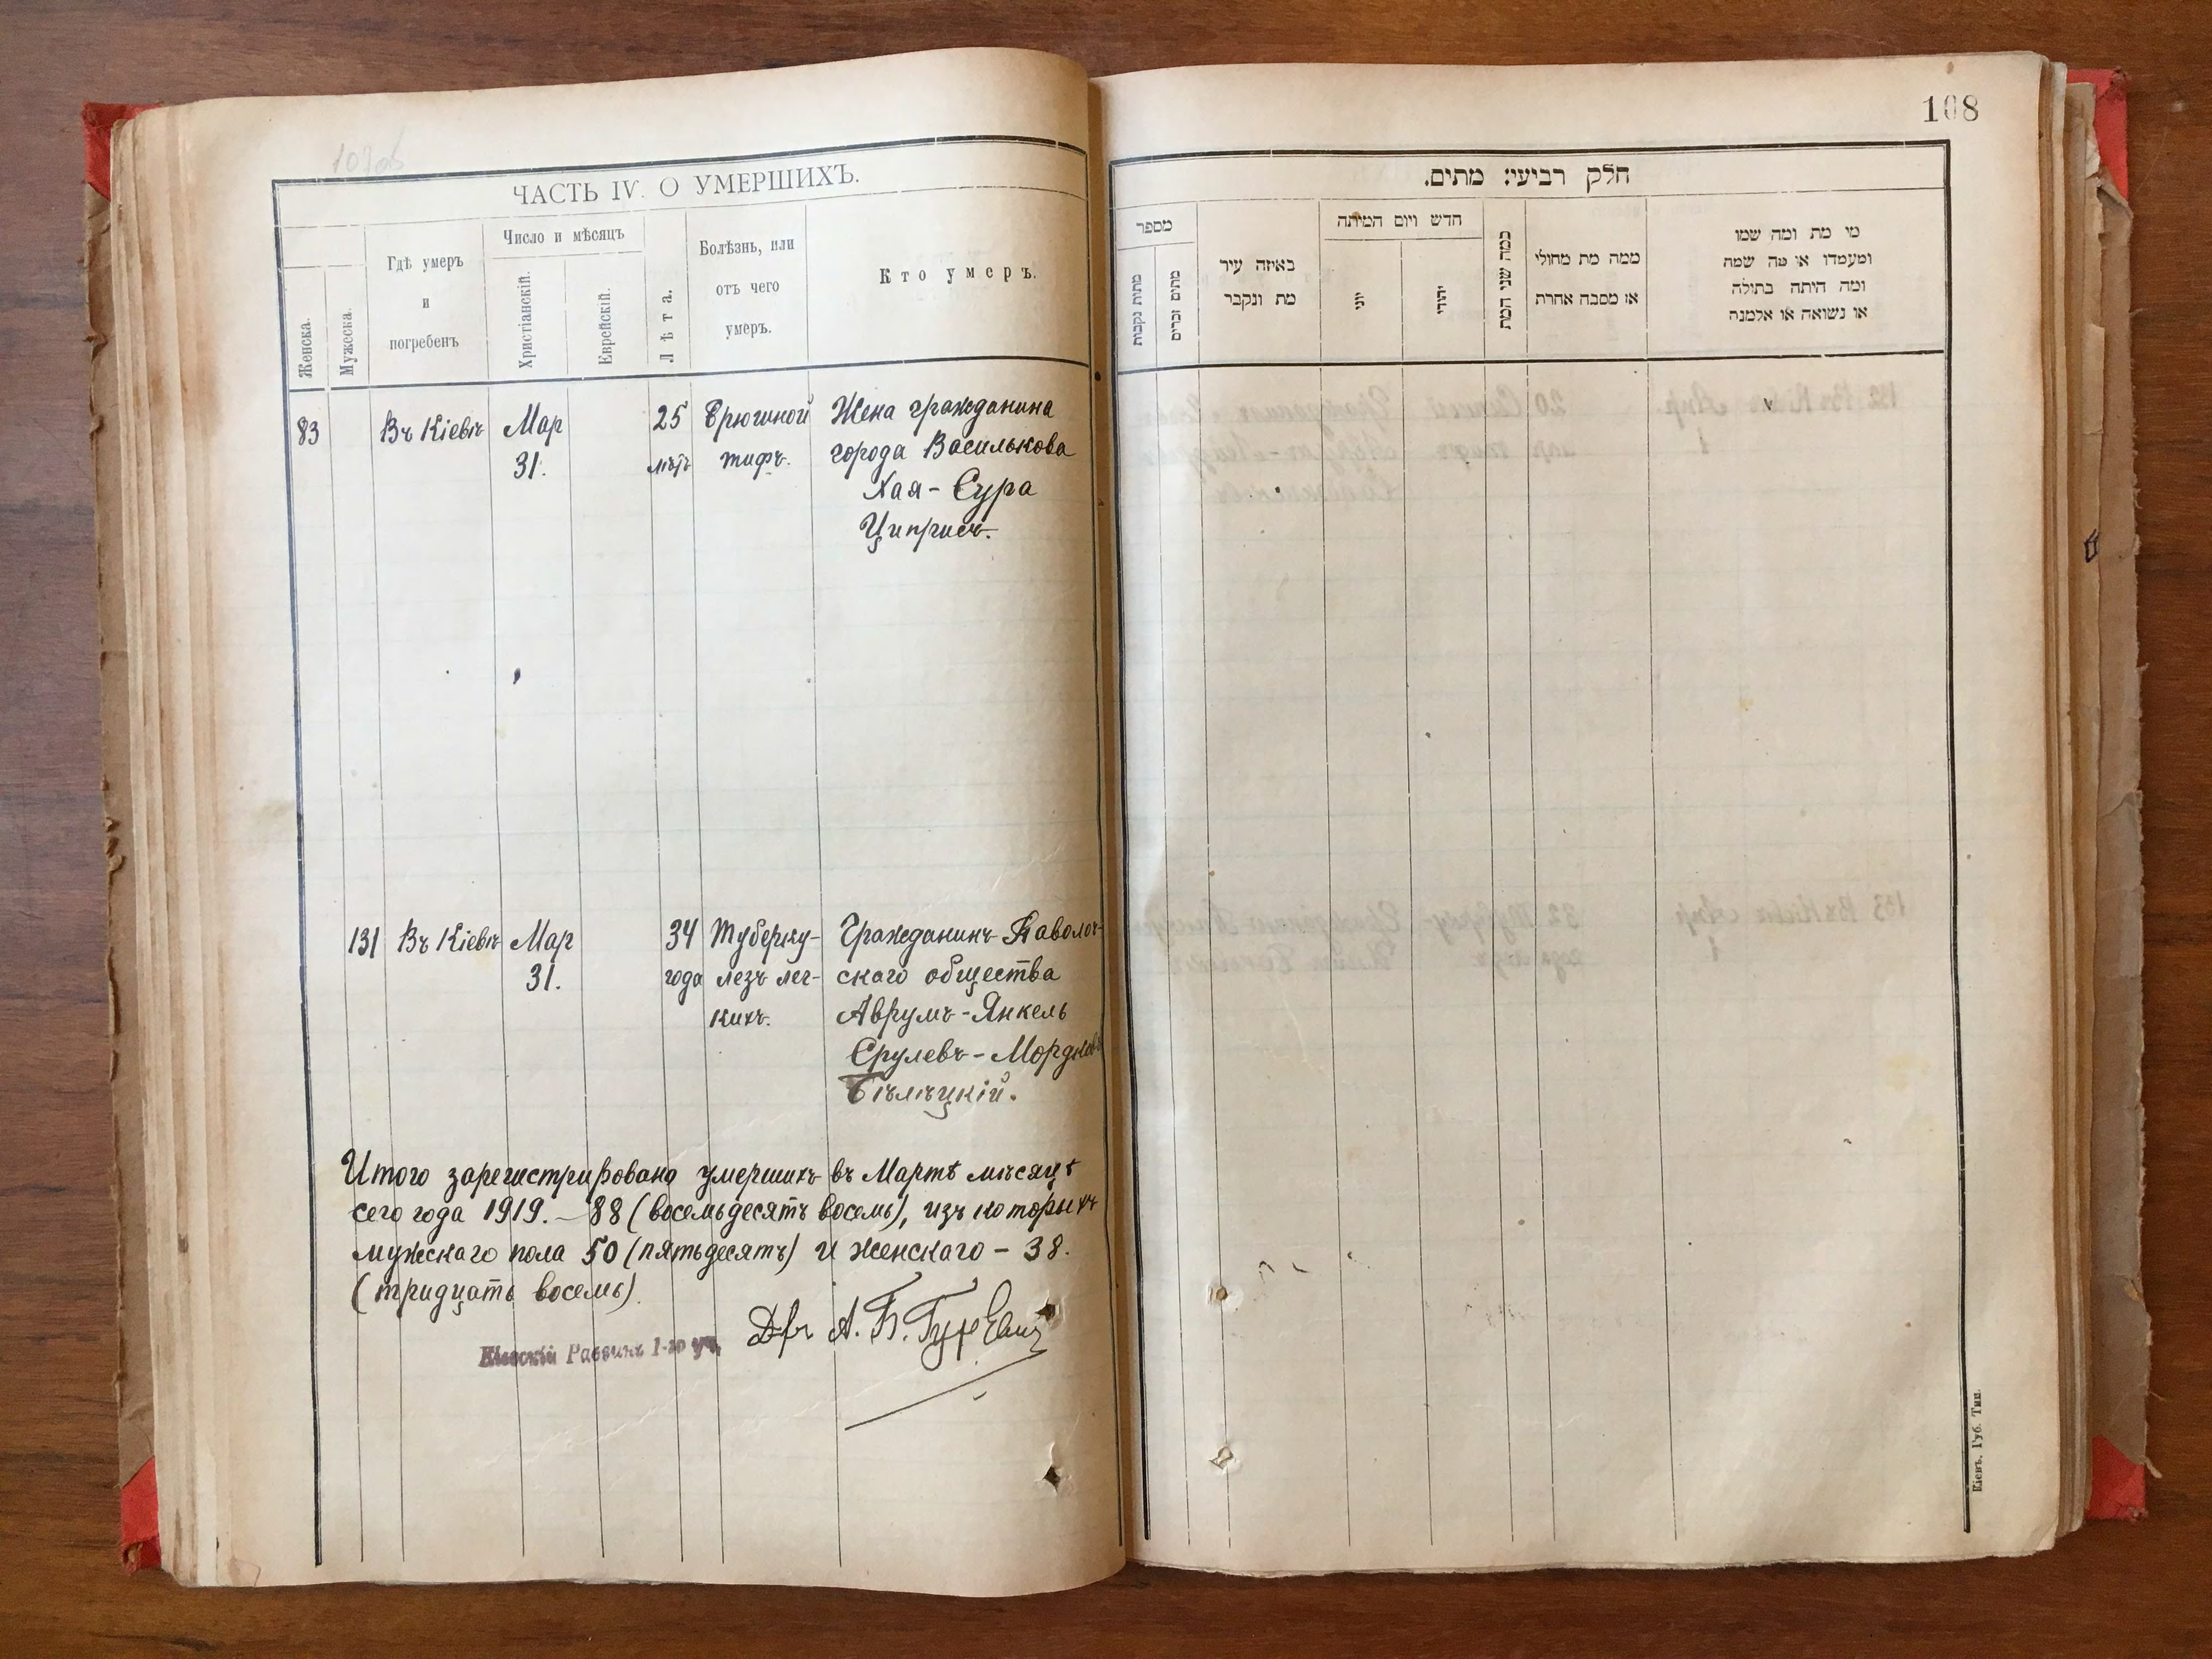 108
ЧАСТЬ IV. О УМЕРШИХЪ.
Женска.
Мужеска.
Гдѣ умеръ
и
погребенъ
Число и мѣсяцъ
Христіанскій.
Еврейскій.
Лѣта.
Болѣзнь, или
отъ чего
умеръ.
Кто умеръ.
83
Въ Кіевѣ
Мар
31.
25
лѣтъ
Брюшной
тифъ.
Жена гражданина
города Василькова
Хая-Сура
Ципрись.
131
Въ Кіевѣ
Мар
31.
34
года
Туберку-
лезъ лег-
кихъ.
Гражданинъ Паволоч-
скаго общества
Аврумъ-Янкель
Срулевъ-Мордков
Бѣлѣцкій.
Итого зарегистрировано умершихъ въ Мартѣ мѣсяцѣ
сего года 1919. - 88 (восемьдесятъ восемь), изъ которыхъ
мужскаго пола 50 (пятьдесятъ) и женскаго - 38.
(тридцать восемь)
Кіевскій Раввинъ 1-го уч.
А. Б. Гуревичъ
חלק רביעי: מתים.
מספר
מתות נקבות
מתים זכרים
באיזה עיר
מת ונקבר
חדש ויום המיתה
יוני
יהודי
כמה שני המת
ממה מת מחולי
או מסבה אחרת
מי מת ומה שמו
ומעמדו או מה שמה
ומה היתה בתולה
או נשואה או אלמנה
Кіевъ, Губ. Тип.